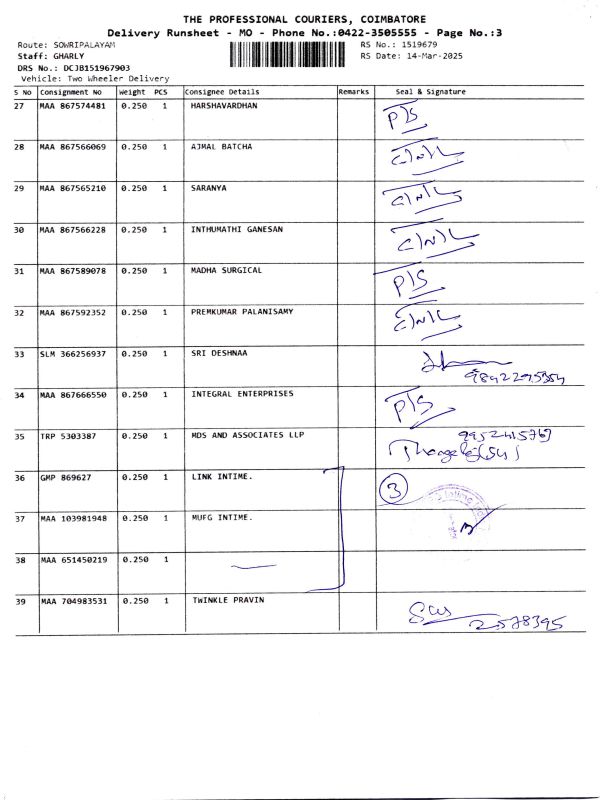 THE PROFESSIONAL COURIERS, COIMBATORE
Delivery Runsheet - MO - Phone No.:0422-3505555 - Page No.:3
Route: SOWRIPALAYAM RS No.: 1519679
Staff: GHARLY RS Date: 14-Mar-2025
DRS No.: DCJB151967903
Vehicle: Two Wheeler Delivery
S No Consignment No Weight PCS Consignee Details Remarks Seal & Signature
27 MAA 867574481 0.250 1 HARSHAVARDHAN P/S
28 MAA 867566069 0.250 1 AJMAL BATCHA C/N/L
29 MAA 867565210 0.250 1 SARANYA C/N/L
30 MAA 867566228 0.250 1 INTHUMATHI GANESAN C/N/L
31 MAA 867589078 0.250 1 MADHA SURGICAL P/S
32 MAA 867592352 0.250 1 PREMKUMAR PALANISAMY C/N/L
33 SLM 366256937 0.250 1 SRI DESHNAA
34 MAA 867666550 0.250 1 INTEGRAL ENTERPRISES P/S
35 TRP 5303387 0.250 1 MDS AND ASSOCIATES LLP 9952415769
36 GMP 869627 0.250 1 LINK INTIME. 3
37 MAA 103981948 0.250 1 MUFG INTIME.
38 MAA 651450219 0.250 1
39 MAA 704983531 0.250 1 TWINKLE PRAVIN
2578395